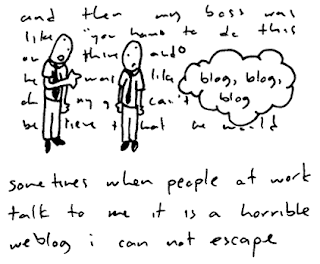 and then my boss was
like "you have to do this
on thing and
he was like
oh my g can't
believe that he would
blog, blog,
blog
sometimes when people at work
talk to me it is a horrible
weblog i can not escape